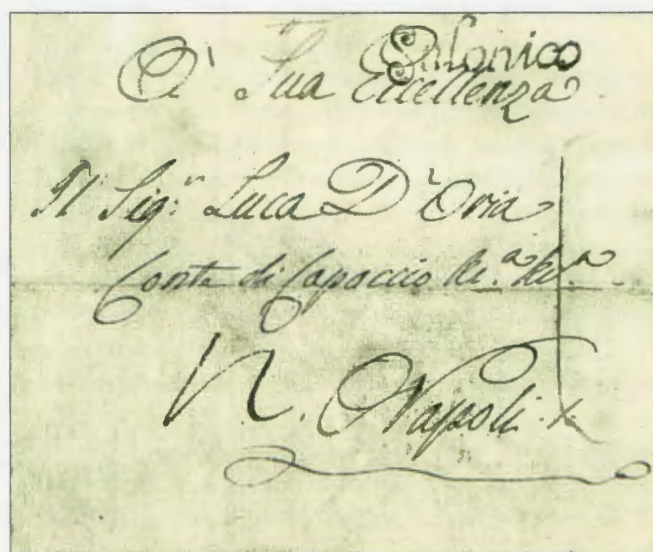 Salonico
A' Sua Eccellenza
Il Sig.r Luca D'Oria
Conte di Capaccio
N. Napoli